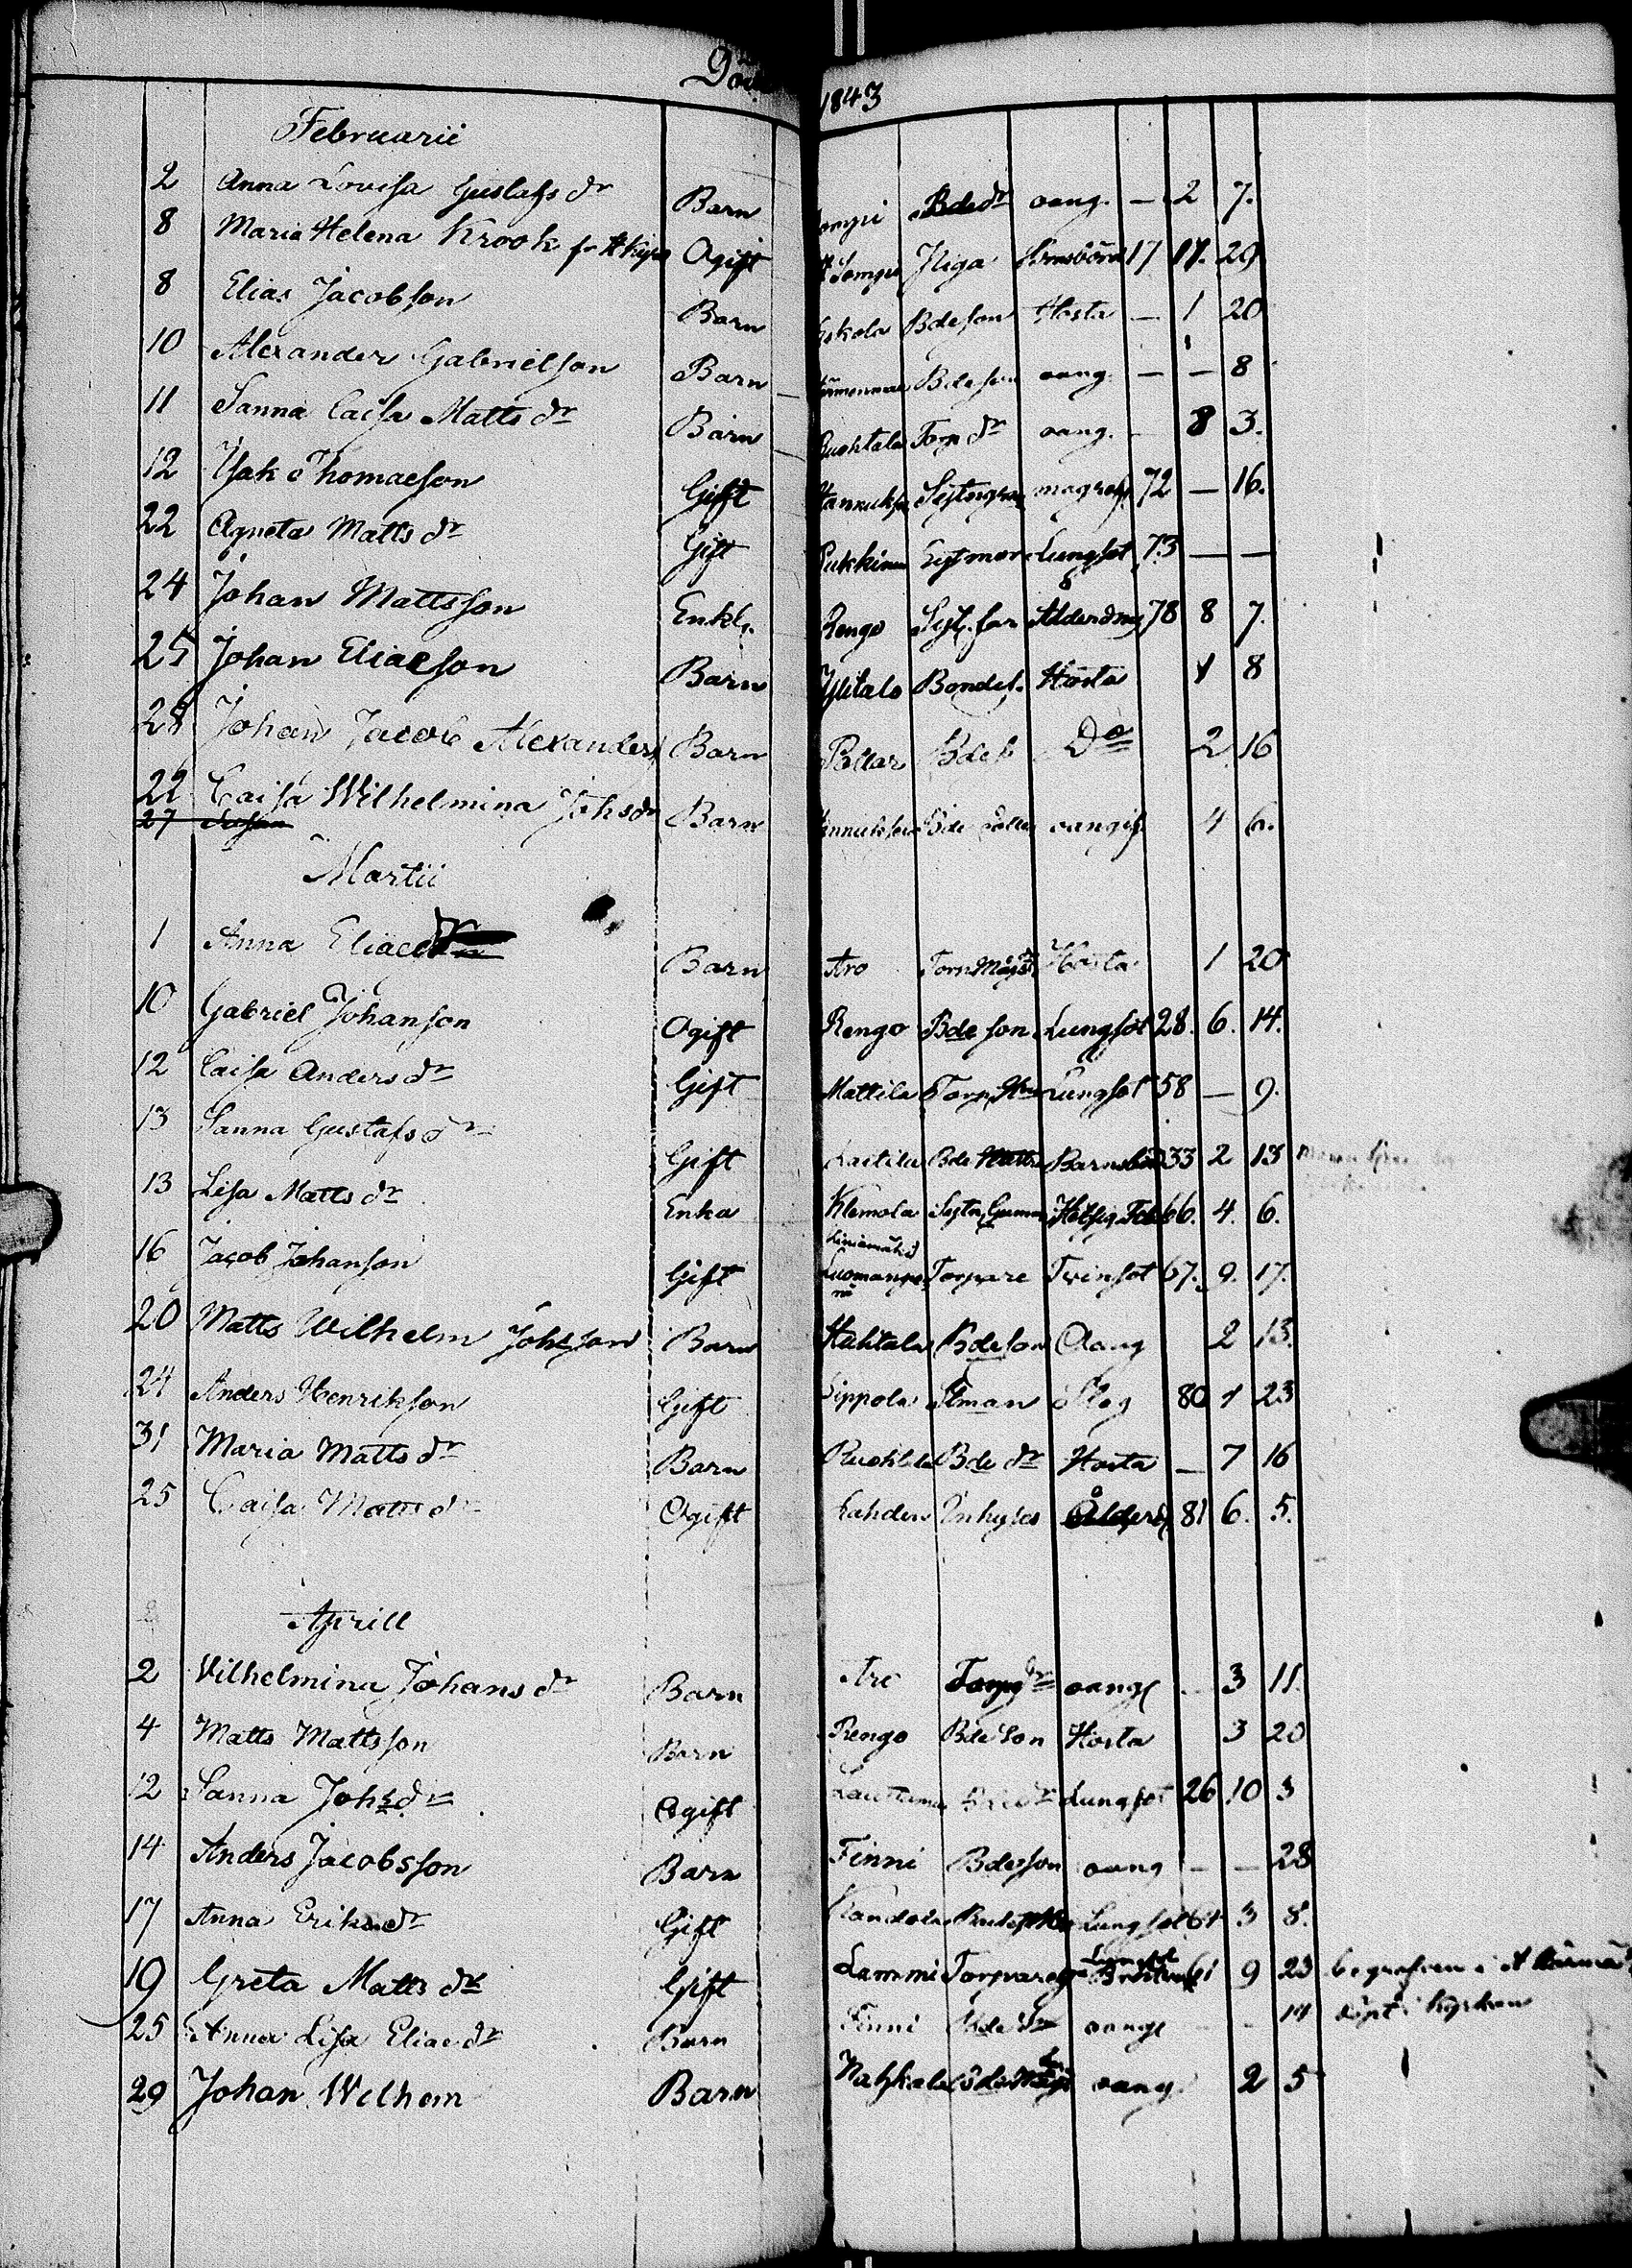 1843
Februarii
2 Anna Lovisa Gustafs dr Barn Bdedr oang. — 2 7.
8 Maria Helena Krook fr Ogift Piga 17 11. 29
8 Elias Jacobson Barn Bdeson Hosta — 1 20
10 Alexander Gabrielson Barn Bdeson oang. — — 8
11 Sanna Caisa Matts dr Barn Ruohtala Torp dr oang. — 8 3.
12 Isak Thomaeson Gift magref. 72 — 16.
22 Agneta Matts dr Gift Lungsot 73 — —
24 Johan Mattsson Enkl. Rengo Syt. far Ålderdm 78 8 7.
25 Johan Eliaeson Barn Ylitalo Bondes. Hosta 1 8
28 Johan Jacob Alexanders Barn Pollar Bdes Do 2 16
22 Caisa Wilhelmina Johsdr Barn Bde dotter oangif 4 6.
27
Martii
1 Anna Eliaedr Barn Aro Hosta 1 20
10 Gabriel Johanson Ogift Rengo Bde son Lungsot 28. 6. 14.
12 Caisa Anders dr Gift Mattila Lungsot 58 — 9.
13 Sanna Gustafs dr Gift Laitila Bde Barnsbörd 33 2 13
13 Lisa Matts dr Enka Klemola 66. 4. 6.
16 Jacob Johanson Gift Torpare Tvinsot 67. 9. 17.
20 Matts Wilhelm Johsson Barn Huhtala Bdeson Oang 2 13.
24 Anders Henrikson Gift Lippola Slag 80 1 23
31 Maria Matts dr Barn Ruohtala Bde dr Hosta — 7 16
25 Caisa Matts dr Ogift Lahden Inhyses Ålders 81 6. 5.
Aprill
2 Vilhelmina Johans dr Barn Aro Torp dr oang 3 11.
4 Matts Mattsson Barn Rengo Bde Son Hosta 3 20
12 Sanna Johsdr Ogift Lungsot 26 10 3
14 Anders Jacobsson Barn Finni Bdesson oang — — 28
17 Anna Eriks dr Gift Kandola Lungsot 64 3 8.
19 Greta Matts dr Gift Lammi Lungsot 61 9 23 begrafven i
25 Anna Lisa Eliae dr Barn Finni Bde dr oang — — 14 döpt i kyrkan
29 Johan Wilhem Barn oang. 2 5